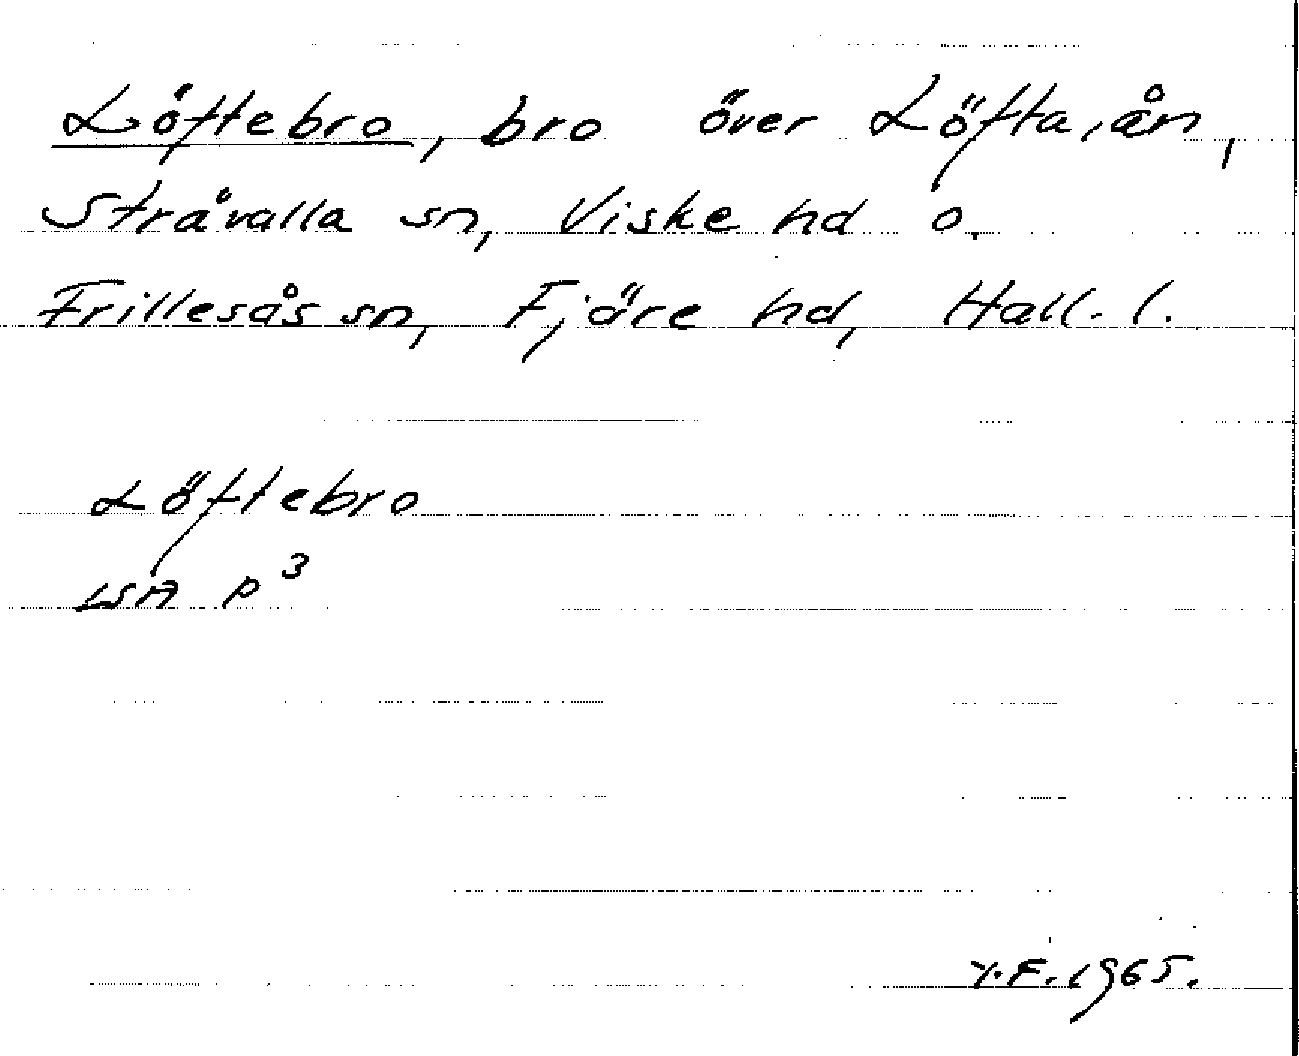 Löftebro, bro över Löfta, ån,
Stråvalla sn, Viske hd o.
Frillesås sn, Fjäre hd, Hall. l.
Löftebro
LSA p³
Y.F. 1965.